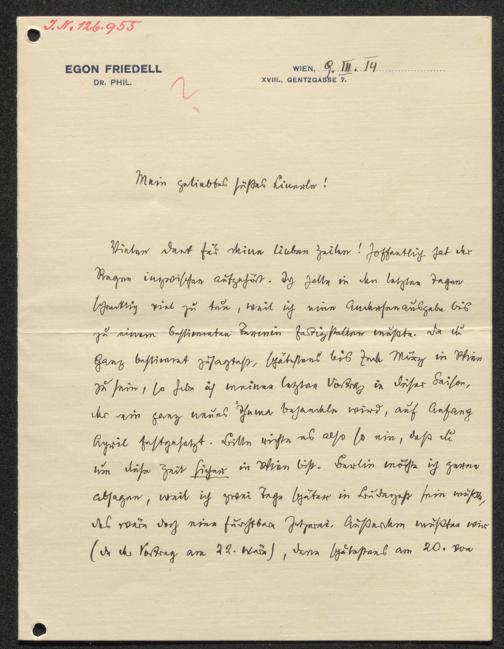 I.N. 126.955
EGON FRIEDELL
DR. PHIL.
WIEN, 9. III. 14
XVIII., GENTZGASSE 7.
Mein geliebtes süßes Linerle!
Vielen Dank für deine lieben Zeilen! Hoffentlich hat der
Regen inzwischen aufgehört. Ich hatte in den letzten Tagen
schrecklich viel zu tun, weil ich eine Andersenausgabe bis
zu einem bestimmten Termin fertigstellen mußte. Da du
ganz bestimmt zusagtest, spätestens bis Ende März in Wien
zu sein, so habe ich meinen letzten Vortrag in dieser Saison,
der ein ganz neues Thema behandeln wird, auf Anfang
April festgesetzt. Bitte richte es also so ein, daß du
um diese Zeit sicher in Wien bist. Berlin möchte ich gerne
absagen, weil ich zwei Tage später in Budapest sein müßte,
das wäre doch eine furchtbare Hetzerei. Außerdem müßten wir
(da der Vortrag am 22. wäre), dann spätestens am 20. von